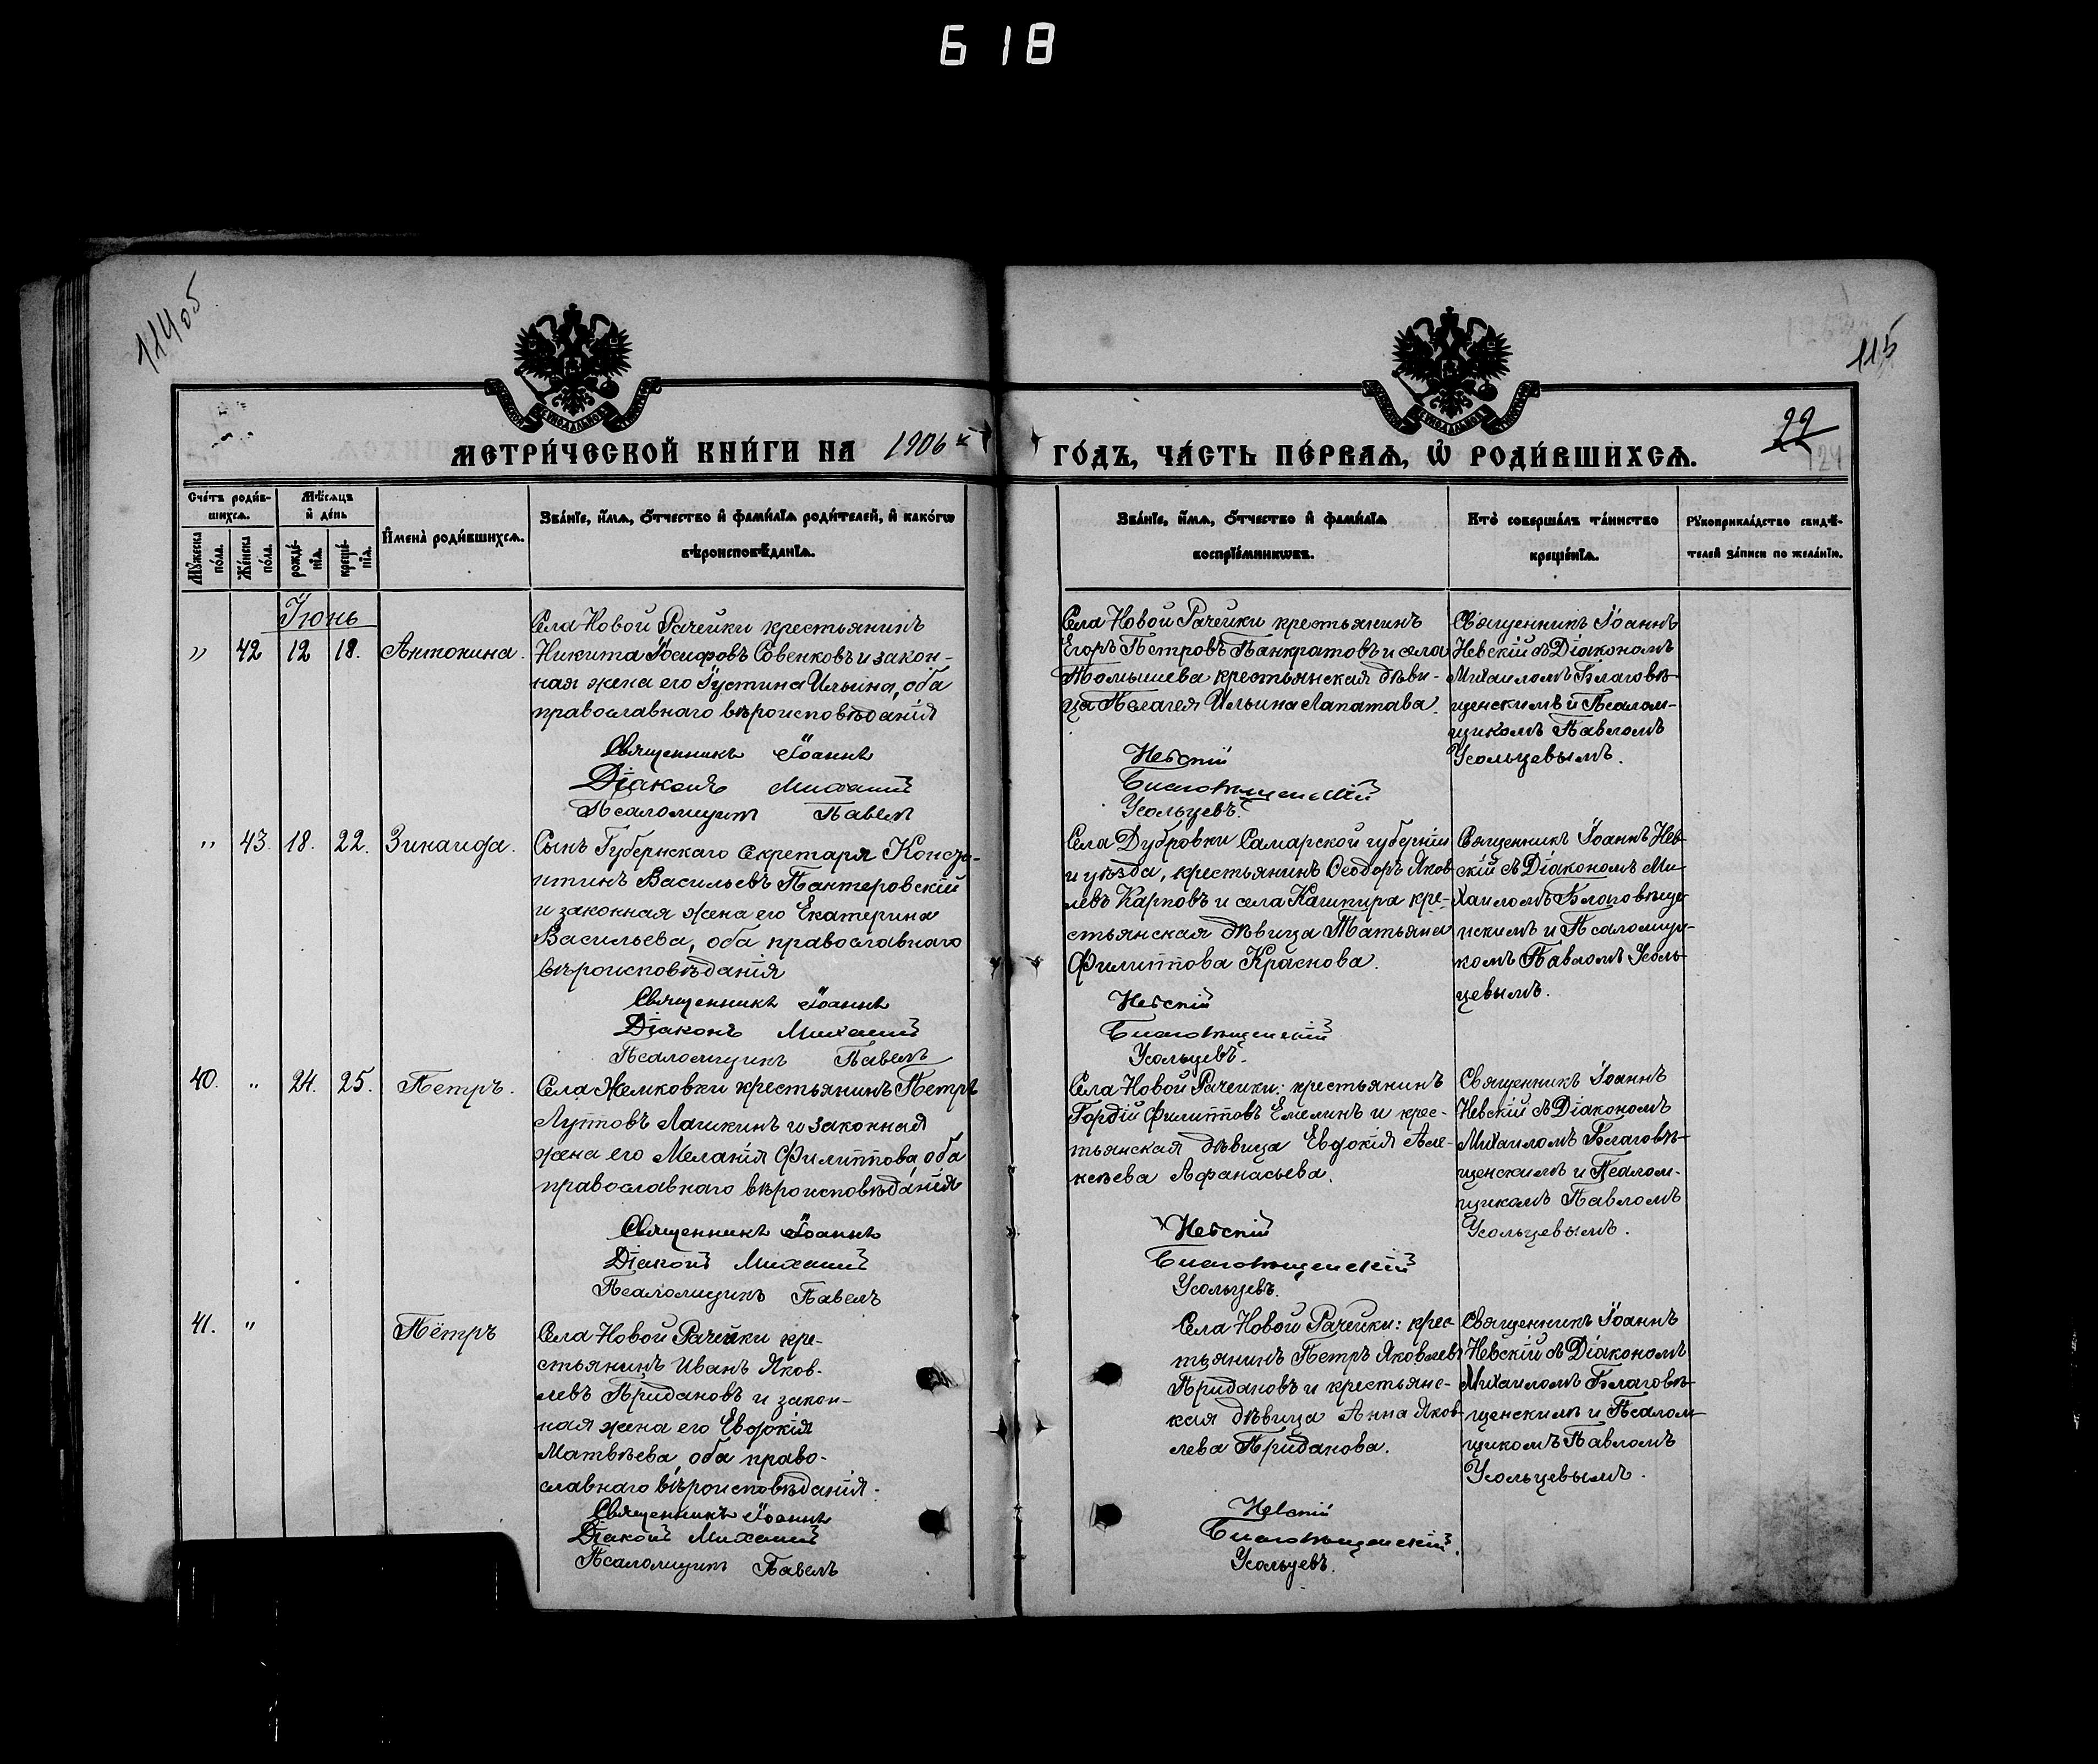 618
114об
115
22
124
МЕТРИ́ЧЕСКОЙ КНИ́ГИ НА 1906 й
ГО́ДЪ, ЧА́СТЬ ПЕ́РВАѦ, Ѽ РОДИ́ВШИХСѦ.
Сче́тъ роди́в-
шихсѧ.
Мꙋ́жеска по́ла.
Же́нска по́ла.
Мѣ́сѧцъ
и҆ де́нь
рожде́-
нїѧ.
креще́-
нїѧ.
И҆мена̀ роди́вшихсѧ.
Зва́нїе, и҆́мѧ, ѻ҆́тчество и҆ фами́лїѧ роди́телей, и҆ како́гѡ
вѣроисповѣ́данїѧ.
Зва́нїе, и҆́мѧ, ѻ҆́тчество и҆ фами́лїѧ
воспрїе́мникѡвъ.
Кто̀ соверша́лъ та́инство
креще́нїѧ.
Рꙋкоприкла́дство свидѣ́-
телей за́писи по жела́нїю.
Іюнь
" 42 12 18. Антонина.
Села Новой Рачейки крестьянинъ
Никита Іосифовъ Совенковъ и закон-
ная жена его Іустина Ильина, оба
православнаго вѣроисповѣданія
Священникъ Іоаннъ
Діаконъ Михаилъ
Псаломщикъ Павелъ
Села Новой Рачейки крестьянинъ
Егоръ Петровъ Панкратовъ и села
Томышева крестьянская дѣви-
ца Пелагея Ильина Лапатава.
Невскій
Благовѣщенскій
Усольцевъ.
Священникъ Іоаннъ
Невскій съ Діакономъ
Михаиломъ Благовѣ-
щенскимъ и Псалом-
щикомъ Павломъ
Усольцевымъ.
" 43. 18. 22. Зинаида.
Сынъ Губернскаго Секретаря Конста-
нтинъ Васильевъ Пантеровскій
и законная жена его Екатерина
Васильева, оба православнаго
вѣроисповѣданія
Священникъ Іоаннъ
Діаконъ Михаилъ
Псаломщикъ Павелъ
Села Дубровки Самарской губерніи
и уѣзда, крестьянинъ Ѳеодоръ Яков
левъ Карповъ и села Кашпира кре-
стьянская дѣвица Татьяна
Филиппова Краснова.
Невскій
Благовѣщенскій
Усольцевъ.
Священникъ Іоаннъ Нев-
скій съ Діакономъ Ми-
хаиломъ Благовѣще-
нскимъ и Псаломщи-
комъ Павломъ Усоль-
цевымъ.
40. " 24. 25. Петръ.
Села Жемковки крестьянинъ Петръ
Лупповъ Лашкинъ и законная
жена его Меланія Филиппова, оба
православнаго вѣроисповѣданія
Священникъ Іоаннъ
Діаконъ Михаилъ
Псаломщикъ Павелъ
Села Новой Рачейки: крестьянинъ
Гордій Филипповъ Емелинъ и крес-
тьянская дѣвица Евдокія Але-
ксѣева Афанасьева.
Невскій
Благовѣщенскій
Усольцевъ.
Священникъ Іоаннъ
Невскій съ Діакономъ
Михаиломъ Благовѣ-
щенскимъ и Псалом-
щикомъ Павломъ
Усольцевымъ.
41. " Пётръ
Села Новой Рачейки кре-
стьянинъ Иванъ Яков-
левъ Придановъ и закон-
ная жена его Евдокія
Матвѣева, оба право-
славнаго вѣроисповѣданія.
Священникъ Іоаннъ
Діаконъ Михаилъ
Псаломщикъ Павелъ
Села Новой Рачейки: крес-
тьянинъ Петръ Яковлевъ
Придановъ и крестьянс-
кая дѣвица Анна Яков
лева Приданова.
Невскій
Благовѣщенскій
Усольцевъ.
Священникъ Іоаннъ
Невскій съ Діакономъ
Михаиломъ Благовѣ-
щенскимъ и Псалом-
щикомъ Павломъ
Усольцевымъ.